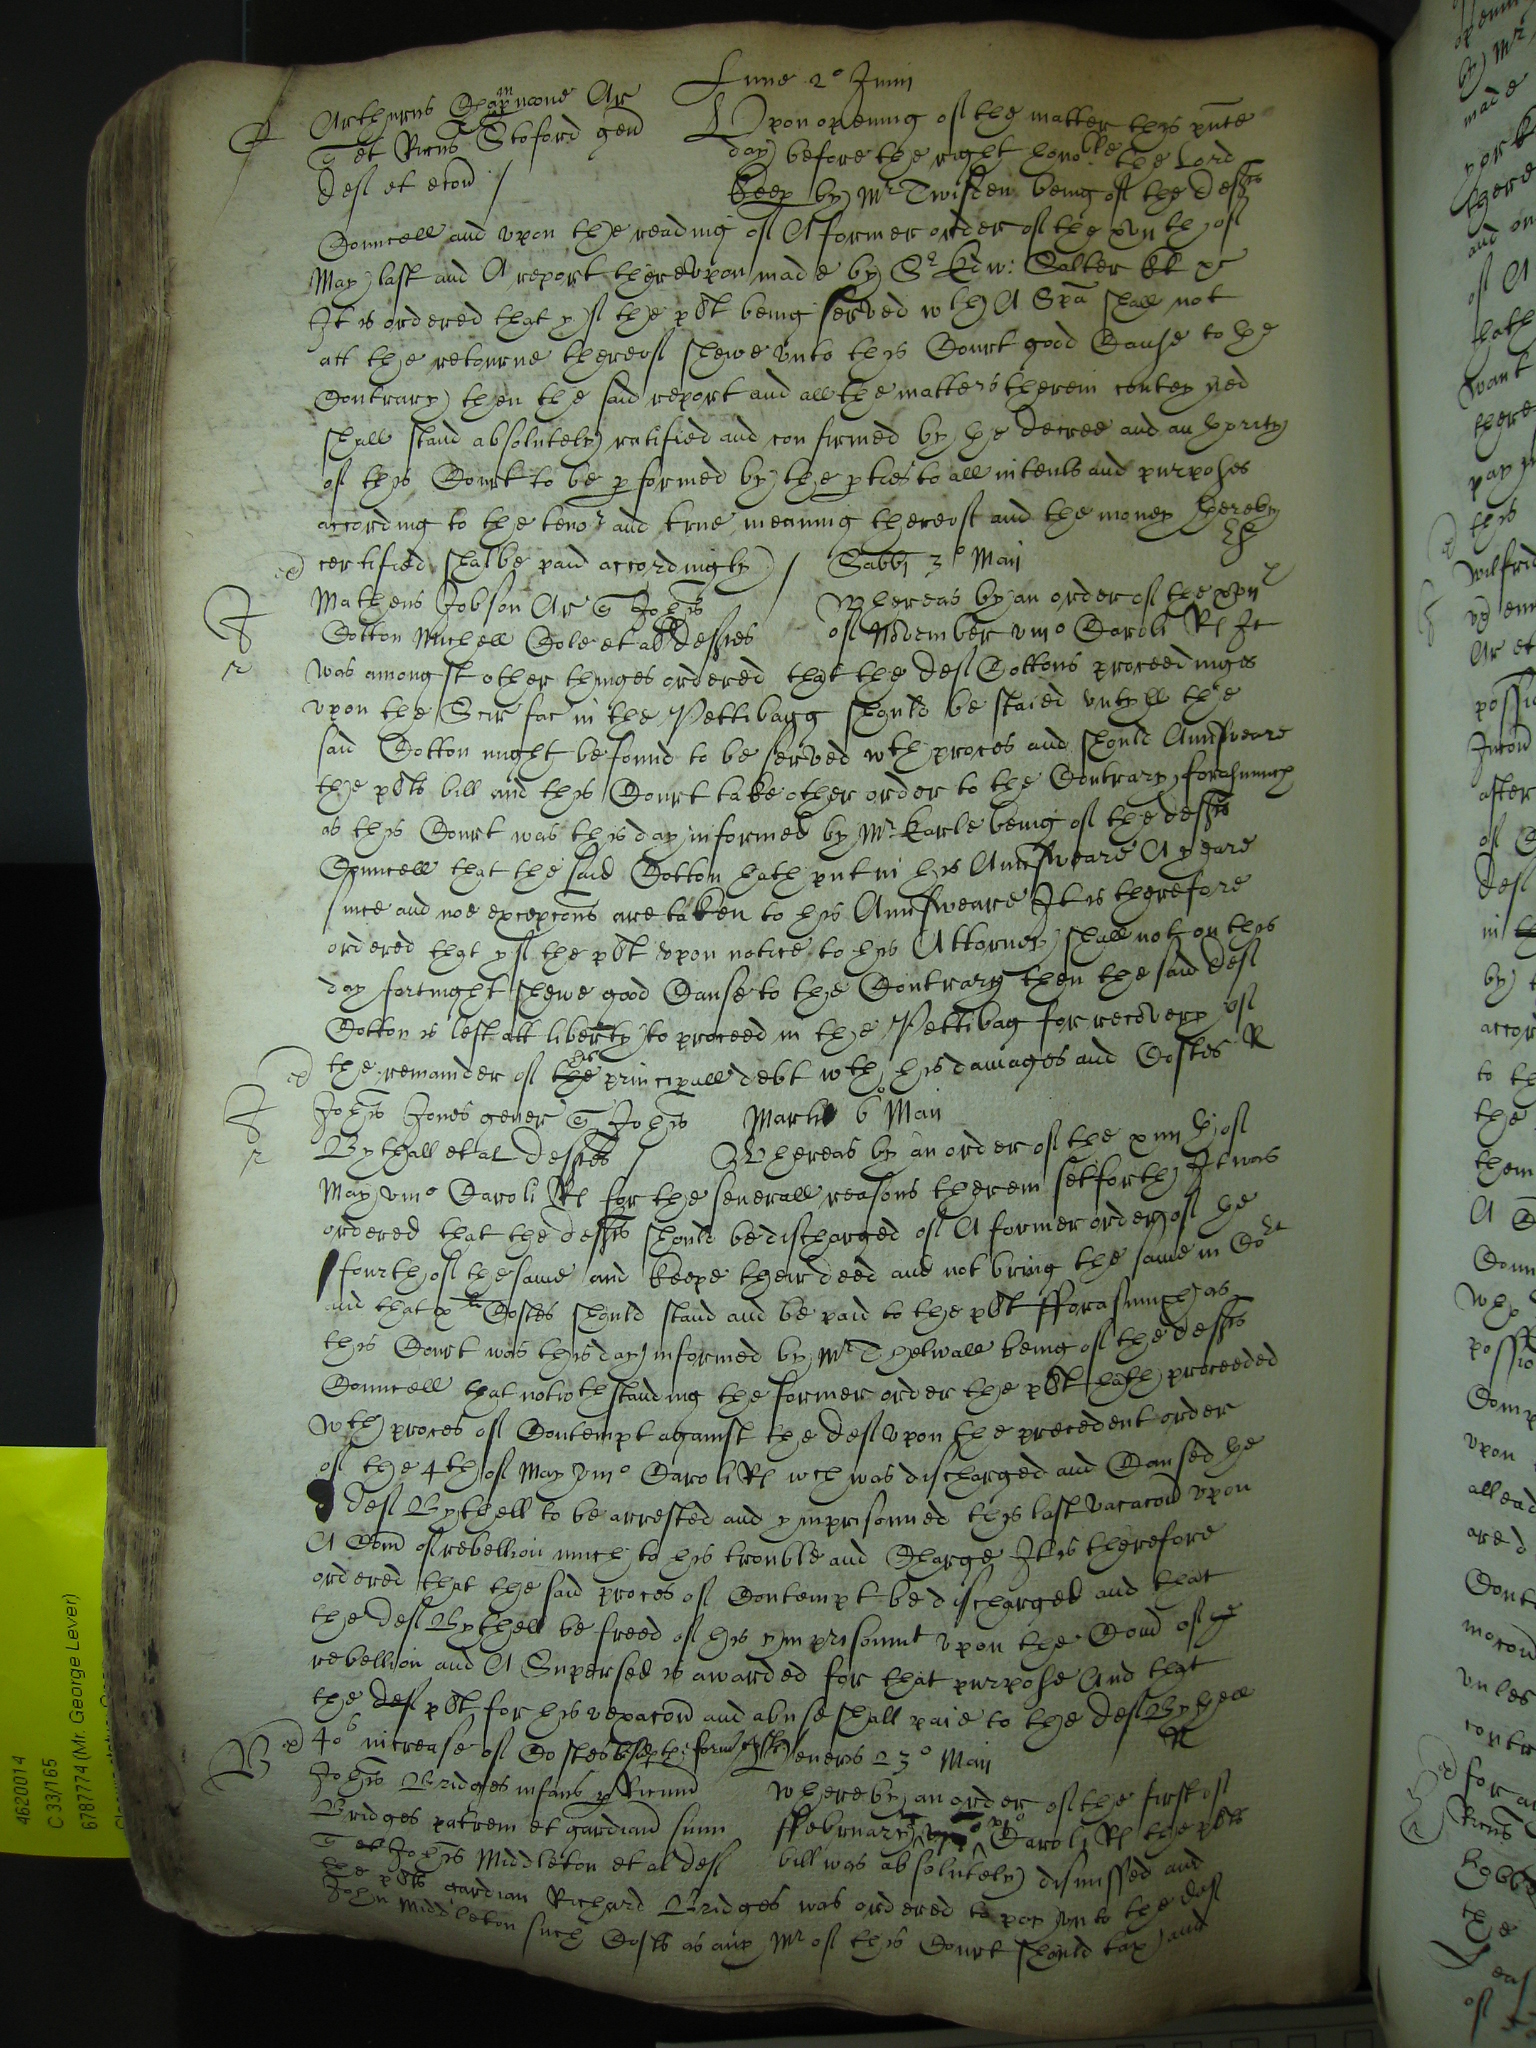 Lune 2º Junij
Arthurus Ar
et Ricus Stoford gen
def et econ /
Vpon opening of the matter this pnte
day before the right honoble the Lord
Keep by Mr Twisden being of the defts
Councell and vpon the reading of A former order of the xvijth of
May last and A report therevpon made by Sr Edw: Salter kt &c
It is ordered that yf the plt being served wth A Spa shall not
att the retourne thereof shewe vnto this Court good Cause to the
Contrary then the said report and all the matters therein conteyned
shall stand absolutely ratified and confirmed by the decree and authority
of this Court to be pformed by the pties to all intents and purposes
according to the tenor and true meaning thereof and the money thereby
certified shalbe paid accordingly /
Sabbi 3º Maij
Matheus Jobson Ar Johis
Cotton Michell Cole et al deftes
Whereas by an order of the
of November vmo Caroli R It
was amongst other thinges ordered that the def Cottons proceedinges
vpon the Scir fac in the Pettibagg should be staied vntyll the
said Cotton might be found to be served wth proces and should Aunsweare
the plts bill and this Court take other order to the Contrary, forasmuch
as this Court was this day informed by Mr Earle being of the defts
Councell that the said Cotton hath put in his Aunsweare A yeare
since and noe excepcons are taken to his Aunsweare It is therefore
ordered that yf the plt vpon notice to his Attorney shall not on this
day fortnight shewe good Cause to the Contrary then the said def
Cotton is left att liberty to proceed in the Pettibag for recovery of
the remainder of the his principall debt wth his damages and Costes R
Johis Jones gener Johis
Bythall et al deftes /
Martis 6º Maij
Whereas by an order of the xiiijth of
May vmo Caroli R for the severall reasons therein setforth It was
ordered that the defts should be discharged of A former order of the
fourth of the same and keepe their deed and not bring the same in Cort
and that xs Costes should stand and be paid to the plt fforasmuch as
this Court was this day informed by Mr Thelwall being of the defts
Councell that notwthstanding the former order the plt hath proceeded
wth proces of Contempt against the def vpon the precedent order
of the 4th of May vmo Caroli R wch was discharged and Caused the
def Bythell to be arrested and ymprisonned this last vacacon vpon
A Com of rebellion much to his trouble and Charge It is therefore
ordered that the said proces of Contempt be discharged and that
the def Bythell be freed of his ymprisonmt vpon the Com of the
rebellion and A Supersed is awarded for that purpose And that
the def plt for his vexacon and abuse shall paie to the def Bythell
40s increase of Costes
Veneris 23º Maij
Johis Bridges infans p Ricum
Bridges patrem et gardian suum
et Johis Middleton et al def
Where by an order of the first of
ffebruary Caroli R the plts
bill was absolutely dismissed and
the plts gardian Richard Bridges was ordered to pay vnto the def
John Middleton such Costs as any Mr of this Court should tax and
4620014
C 33/165
6787774 (Mr. George Lever)